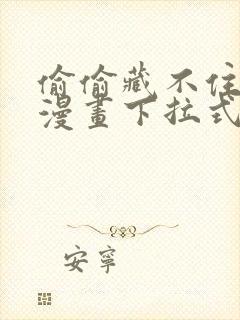 偷偷藏不住
漫畫下拉式
安寧